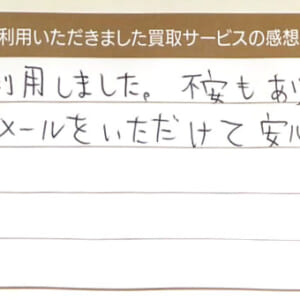 利用いただきました買取サービスの感想
利用しました。不安もあ
メールをいただけて安